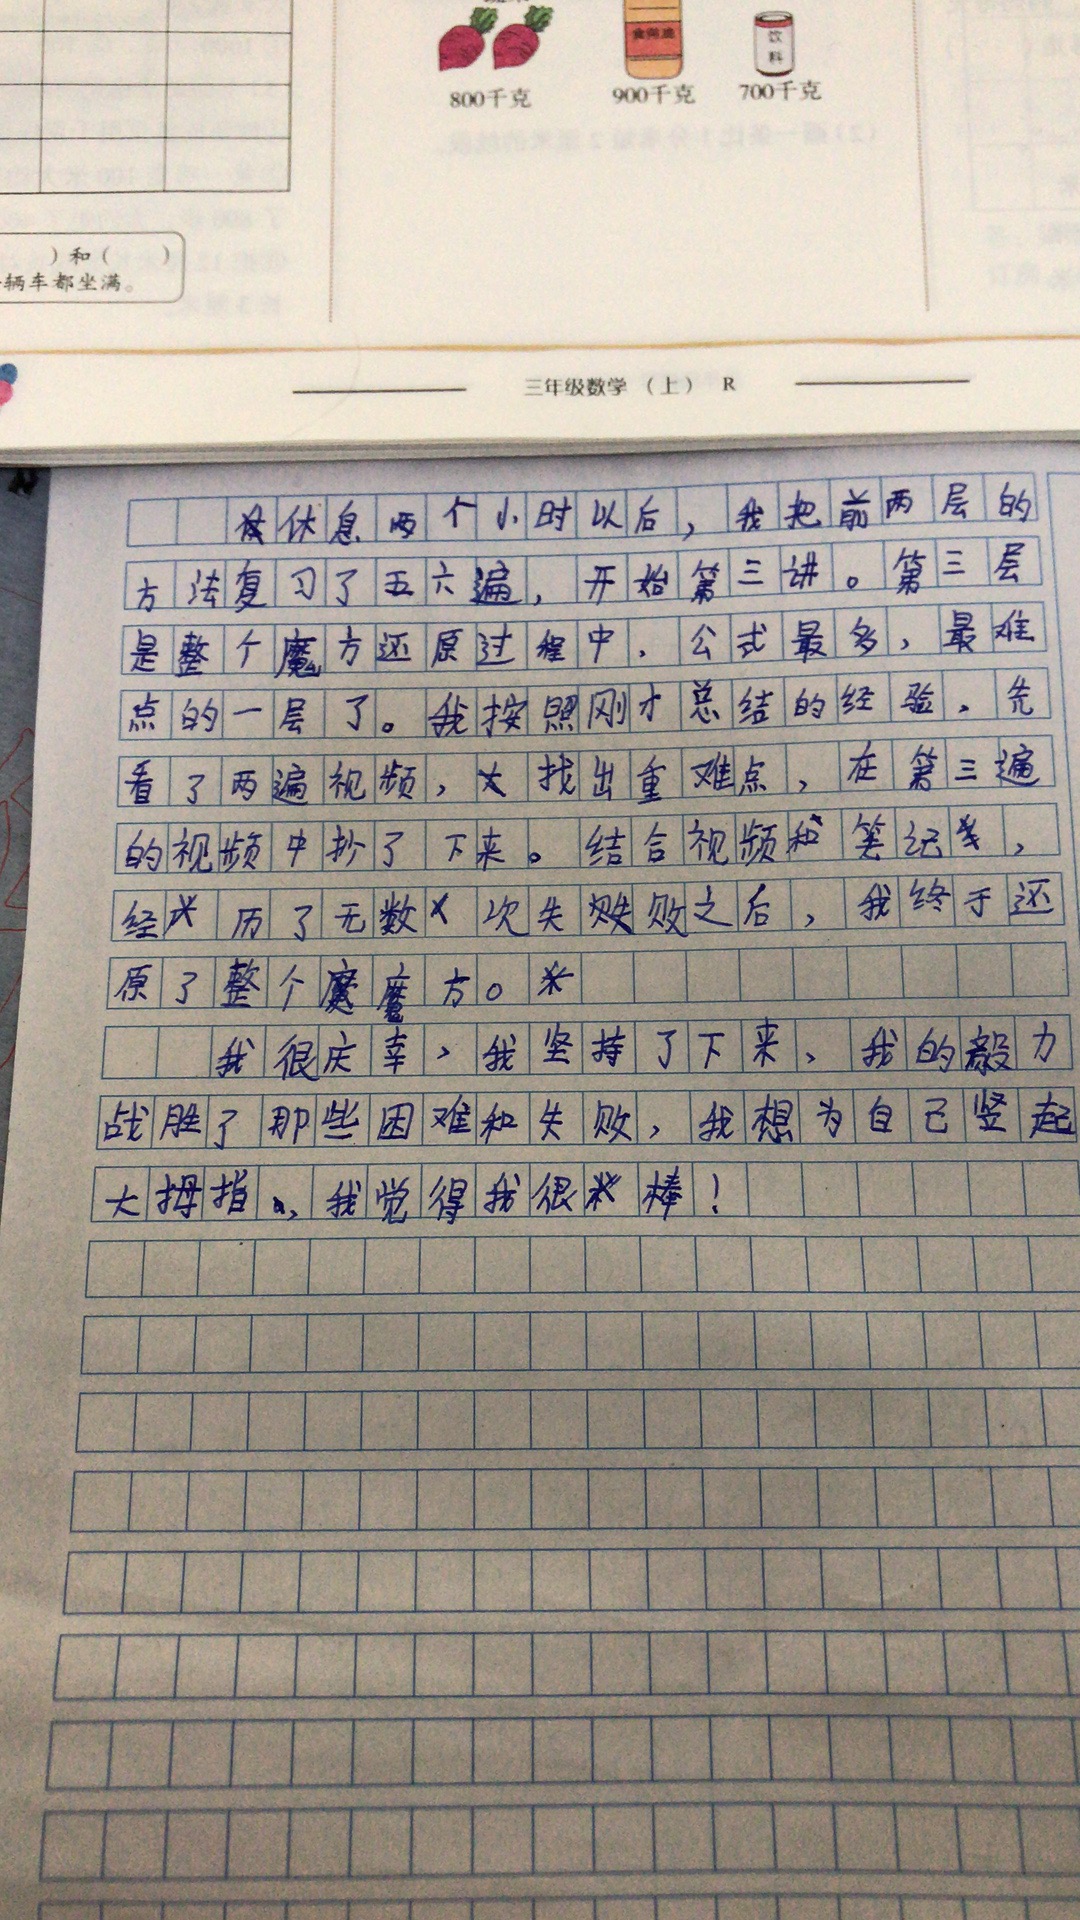 食用油
饮料
800千克 900千克 700千克
)和( )
辆车都坐满。
三年级数学(上) R
休息两个小时以后,我把前两层的
方法复习了五六遍,开始第三讲。第三层
是整个魔方还原过程中,公式最多,最难
点的一层了。我按照刚才总结的经验,先
看了两遍视频,找出重难点,在第三遍
的视频中抄了下来。结合视频和笔记,
经历了无数次失败之后,我终于还
原了整个魔方。
我很庆幸,我坚持了下来,我的毅力
战胜了那些困难和失败,我想为自己竖起
大拇指,我觉得我很棒!